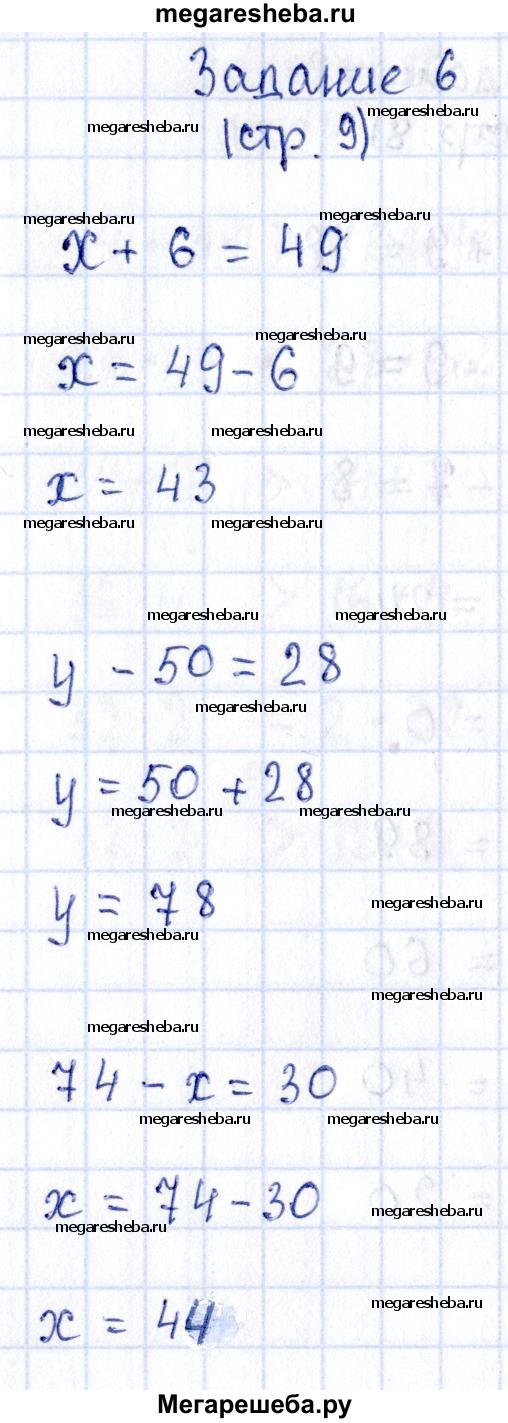 megaresheba.ru
Задание 6
megaresheba.ru megaresheba.ru
(стр. 9)
megaresheba.ru megaresheba.ru
x + 6 = 49
megaresheba.ru megaresheba.ru
x = 49 - 6
megaresheba.ru megaresheba.ru
x = 43
megaresheba.ru megaresheba.ru
megaresheba.ru megaresheba.ru
y - 50 = 28
megaresheba.ru
y = 50 + 28
megaresheba.ru megaresheba.ru
y = 78
megaresheba.ru
megaresheba.ru
megaresheba.ru
megaresheba.ru
74 - x = 30
megaresheba.ru megaresheba.ru
x = 74 - 30
megaresheba.ru
megaresheba.ru
megaresheba.ru
x = 44
Мегарешеба.ру